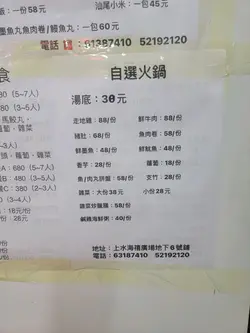 一份58元
汕尾小米：一包45元
墨魚丸魚肉卷/鱔魚丸：一包60元
電話：61387410 52192120
食
自選火鍋
湯底：30元
走地雞：88/份 鮮牛肉：88/份
豬肚：68/份 魚肉卷：58/份
鮮墨魚：48/份 鮮魷魚：48/份
香芋：28/份 蘿蔔：18/份
魚/肉丸拼盤：58/份 支竹：28/份
雜菜：大份38元 小份28元
雜菜炒麵腸：58/份
鹹雞海鮮粥：40/份
地址：上水海禧廣場地下6號鋪
電話：63187410 52192120
680（5-7人）
馬鮫丸，
蘿蔔、雜菜
80（3-4人）
頭，蘿蔔、雜菜
A：680（5-7人）
B：480（3-5人）
C：380（2-3人）
18元/份
：25元